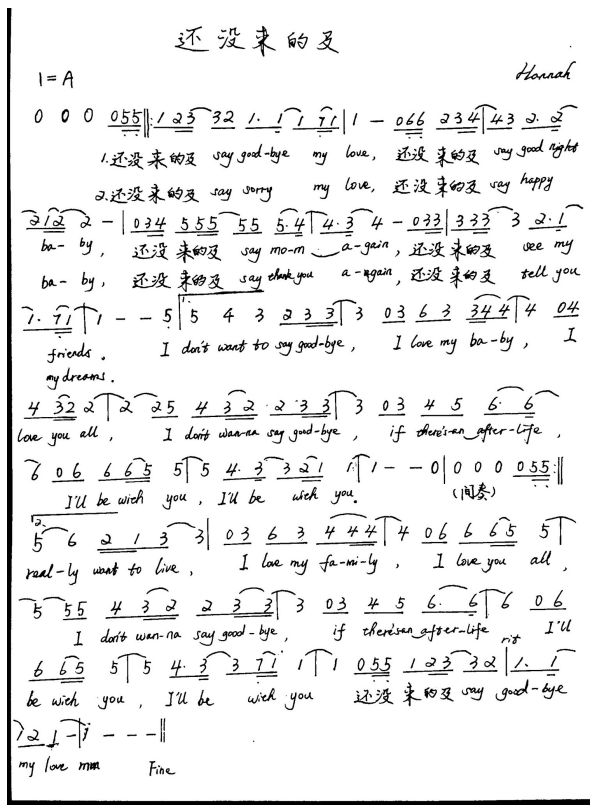 还没来的及
1=A
Hannah
0 0 0 055 ‖: 123 32 1. 1 1 71 | 1 – 066 234 | 43 2. 2
1.还没来的及 say good-bye my love, 还没来的及 say good night
2.还没来的及 say sorry my love, 还没来的及 say happy
212 2 – | 034 555 55 5.4 | 4.3 4 – 033 | 333 3 2.1
ba-by, 还没来的及 say mo-m a-gain, 还没来的及 see my
ba-by, 还没来的及 say thank you a-again, 还没来的及 tell you
1. 71 | 1 – – 5 | 1. 5 4 3 2 3 3 | 3 03 6 3 344 | 4 04
friends. I don't want to say good-bye, I love my ba-by, I
my dreams.
4 32 2 | 2 25 4 32 2 33 | 3 03 4 5 6. 6
love you all, I don't wan-na say good-bye, if there's-an after-life,
6 06 665 5 | 5 4.3 321 1 | 1 – – 0 | 0 0 0 055 :‖
I'll be with you, I'll be with you. (间奏)
2.
5 6 2 1 3 3 | 03 6 3 444 | 4 06 665 5 |
real-ly want to live, I love my fa-mi-ly, I love you all,
5 55 4 32 2 33 | 3 03 4 5 6. 6 | 6 06
I don't wan-na say good-bye, if there'san after-life rit I'll
6 65 5 | 5 4.3 3 71 1 | 1 055 123 32 | 1. 1
be with you, I'll be with you 还没来的及 say good-bye
1 2 1 – | 1 – – – ‖
my love mm Fine